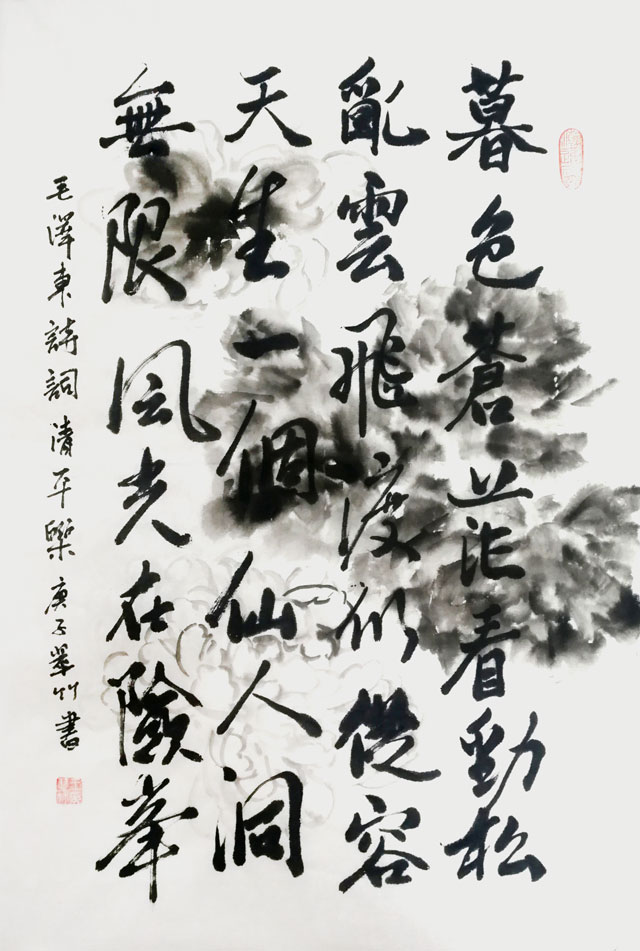 暮色蒼茫看勁松
亂雲飛渡似從容
天生一個仙人洞
無限風光在險峯
毛澤東詩詞清平樂庚子翠竹書